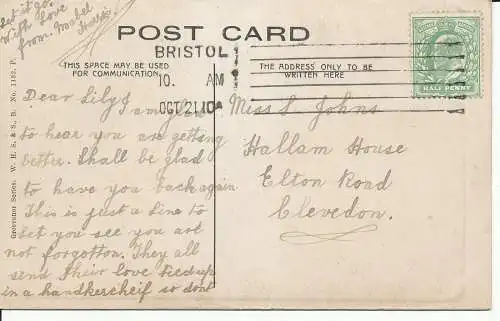 let it go.
With love
from. Mabel
Harris.
POST CARD
THIS SPACE MAY BE USED
FOR COMMUNICATION.
THE ADDRESS ONLY TO BE
WRITTEN HERE
BRISTOL
10. AM
OCT 21 10
HALF PENNY
Grosvenor Series. W. H. S. & S. B. No. 1193. P.
Dear Lily I am glad
to hear you are getting
better. Shall be glad
to have you back again
This is just a line to
let you see you are
not forgotton. They all
send their love tied up
in a handkercheif so dont
Miss L Johns
Hallam House
Elton Road
Clevedon.